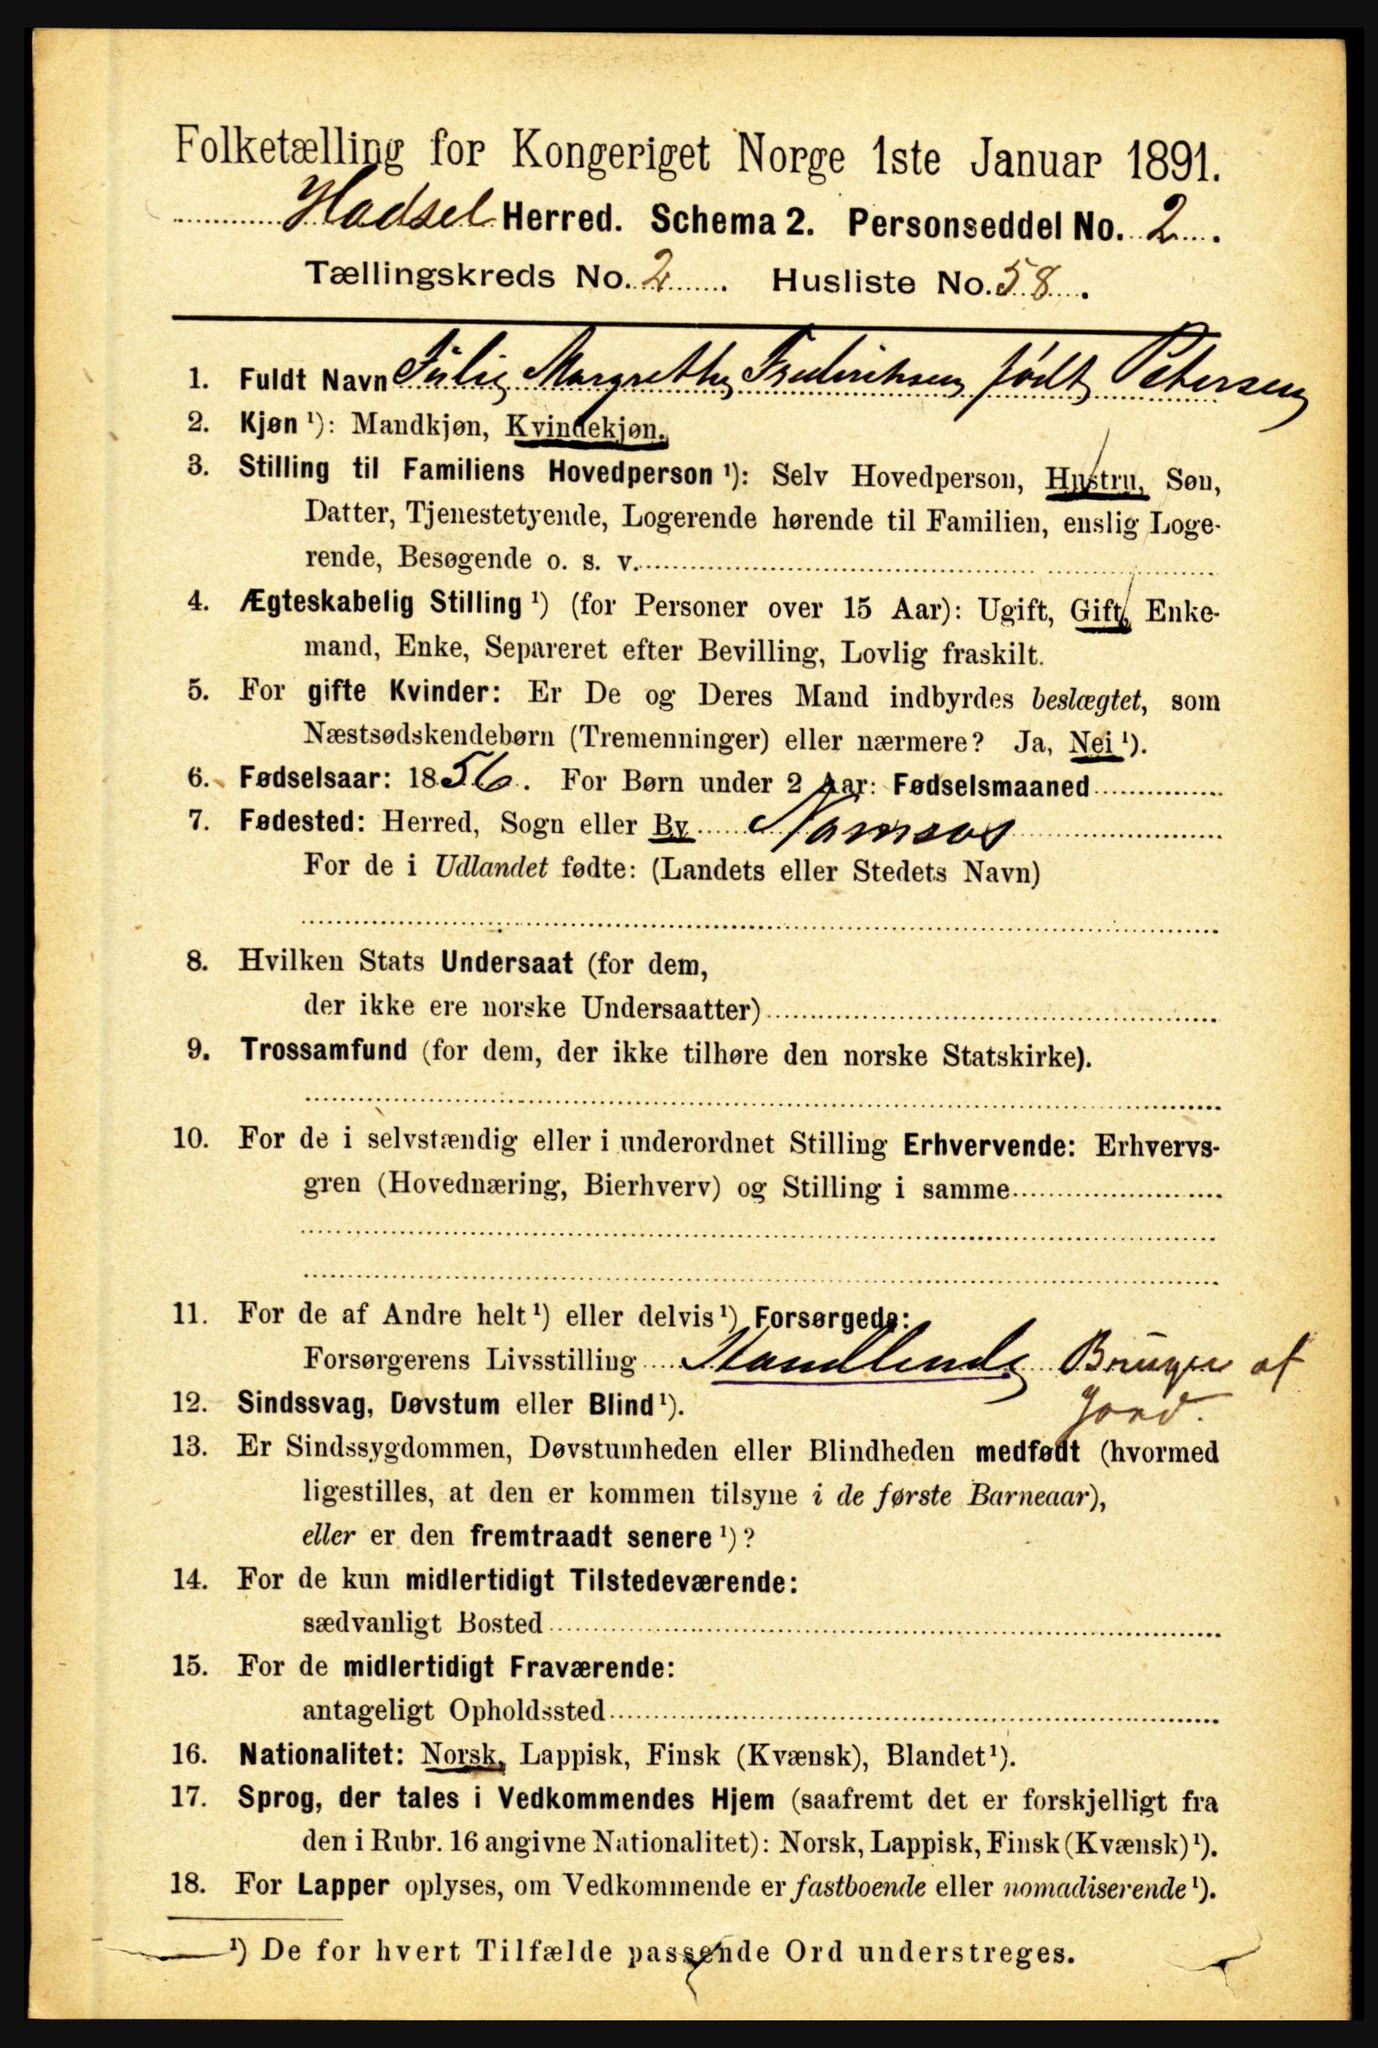 Folketælling for Kongeriget Norge 1ste Januar 1891.
Hadsel Herred. Schema 2. Personseddel No. 2.
Tællingskreds No. 2. Husliste No. 58.
1. Fuldt Navn Julie Margrethe Frederiksen født Petersen
2. Kjøn ¹): Mandkjøn, Kvindekjøn.
3. Stilling til Familiens Hovedperson ¹): Selv Hovedperson, Hustru, Søn,
Datter, Tjenestetyende, Logerende hørende til Familien, enslig Loge-
rende, Besøgende o. s. v.
4. Ægteskabelig Stilling ¹) (for Personer over 15 Aar): Ugift, Gift, Enke-
mand, Enke, Separeret efter Bevilling, Lovlig fraskilt.
5. For gifte Kvinder: Er De og Deres Mand indbyrdes beslægtet, som
Næstsødskendebørn (Tremenninger) eller nærmere? Ja, Nei ¹).
6. Fødselsaar: 1856. For Børn under 2 Aar: Fødselsmaaned
7. Fødested: Herred, Sogn eller By Namsos
For de i Udlandet fødte: (Landets eller Stedets Navn)
8. Hvilken Stats Undersaat (for dem,
der ikke ere norske Undersaatter)
9. Trossamfund (for dem, der ikke tilhøre den norske Statskirke).
10. For de i selvstændig eller i underordnet Stilling Erhvervende: Erhvervs-
gren (Hovednæring, Bierhverv) og Stilling i samme
11. For de af Andre helt ¹) eller delvis ¹) Forsørgede:
Forsørgerens Livsstilling Handlende Bruger af
Jord.
12. Sindssvag, Døvstum eller Blind ¹).
13. Er Sindssygdommen, Døvstumheden eller Blindheden medfødt (hvormed
ligestilles, at den er kommen tilsyne i de første Barneaar),
eller er den fremtraadt senere ¹)?
14. For de kun midlertidigt Tilstedeværende:
sædvanligt Bosted
15. For de midlertidigt Fraværende:
antageligt Opholdssted
16. Nationalitet: Norsk, Lappisk, Finsk (Kvænsk), Blandet ¹).
17. Sprog, der tales i Vedkommendes Hjem (saafremt det er forskjelligt fra
den i Rubr. 16 angivne Nationalitet): Norsk, Lappisk, Finsk (Kvænsk) ¹).
18. For Lapper oplyses, om Vedkommende er fastboende eller nomadiserende ¹).
¹) De for hvert Tilfælde passende Ord understreges.